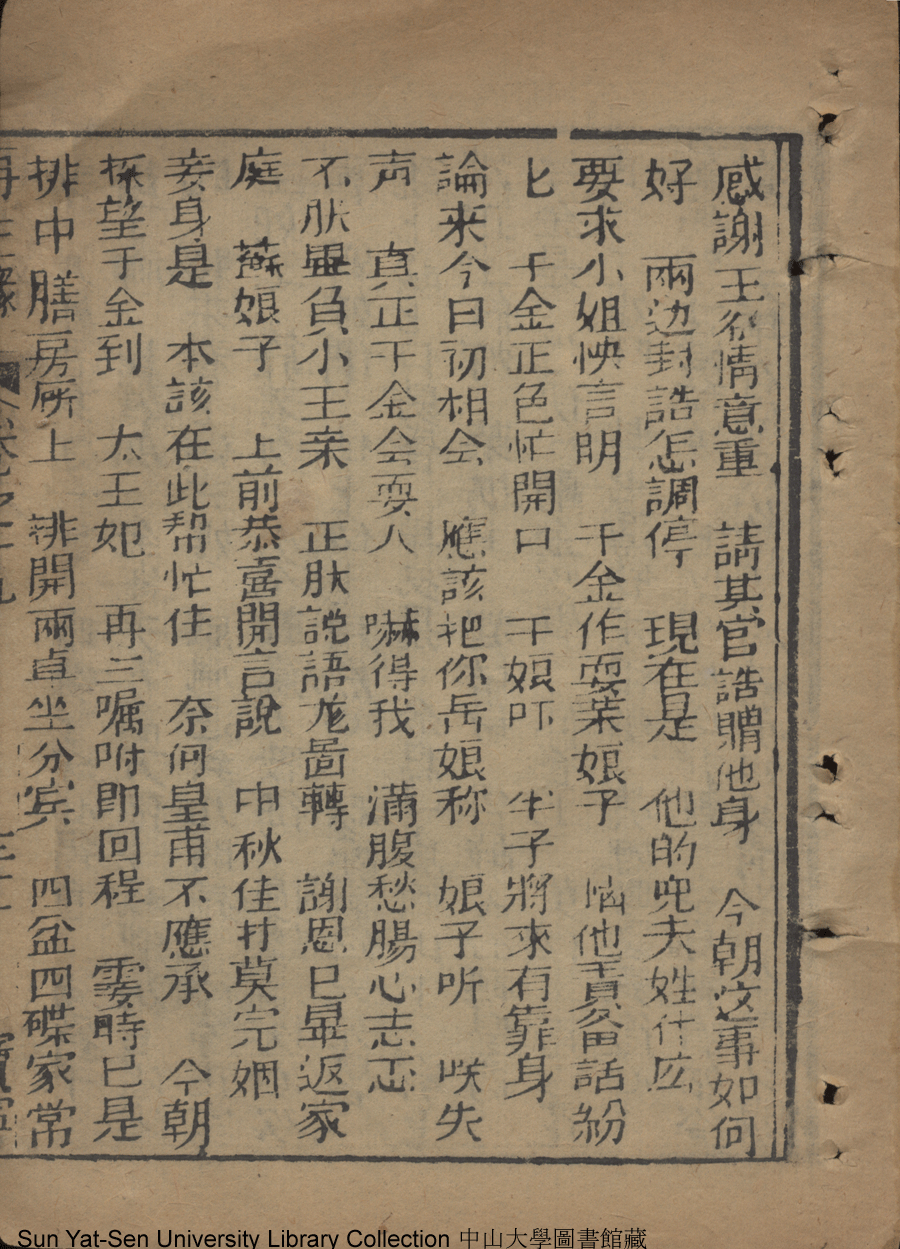 感謝王爷情意重　請其官誥贈他身　今朝这事如何
好　兩边封誥怎調停　現在是　他的兜夫姓什庅
要求小姐怏言明　千金作耍葉娘子　惱他責畨話紛
匕　千金正色忙開口　干娘吓　半子將來有靠身
論來今日初相会　應該把你岳娘称　娘子听　唉失
声　真正千金会耍人　嚇得我　滿腹愁腸心志忑
不肰畢負小王亲　正肰説語鸞啚轉　謝恩已畢返家
庭　蘇娘子　上前恭喜開言說　中秋佳才莫完姻
妾身是　本該在此帮忙住　奈何皇甫不應承　今朝
探望千金到　太王妃　再三嘱咐即回程　霎時已是
排中膳房所上　排開兩卓坐分宾　四盆四碟家常
再生緣　卷之十九
Sun Yat-Sen University Library Collection 中山大學圖書館藏